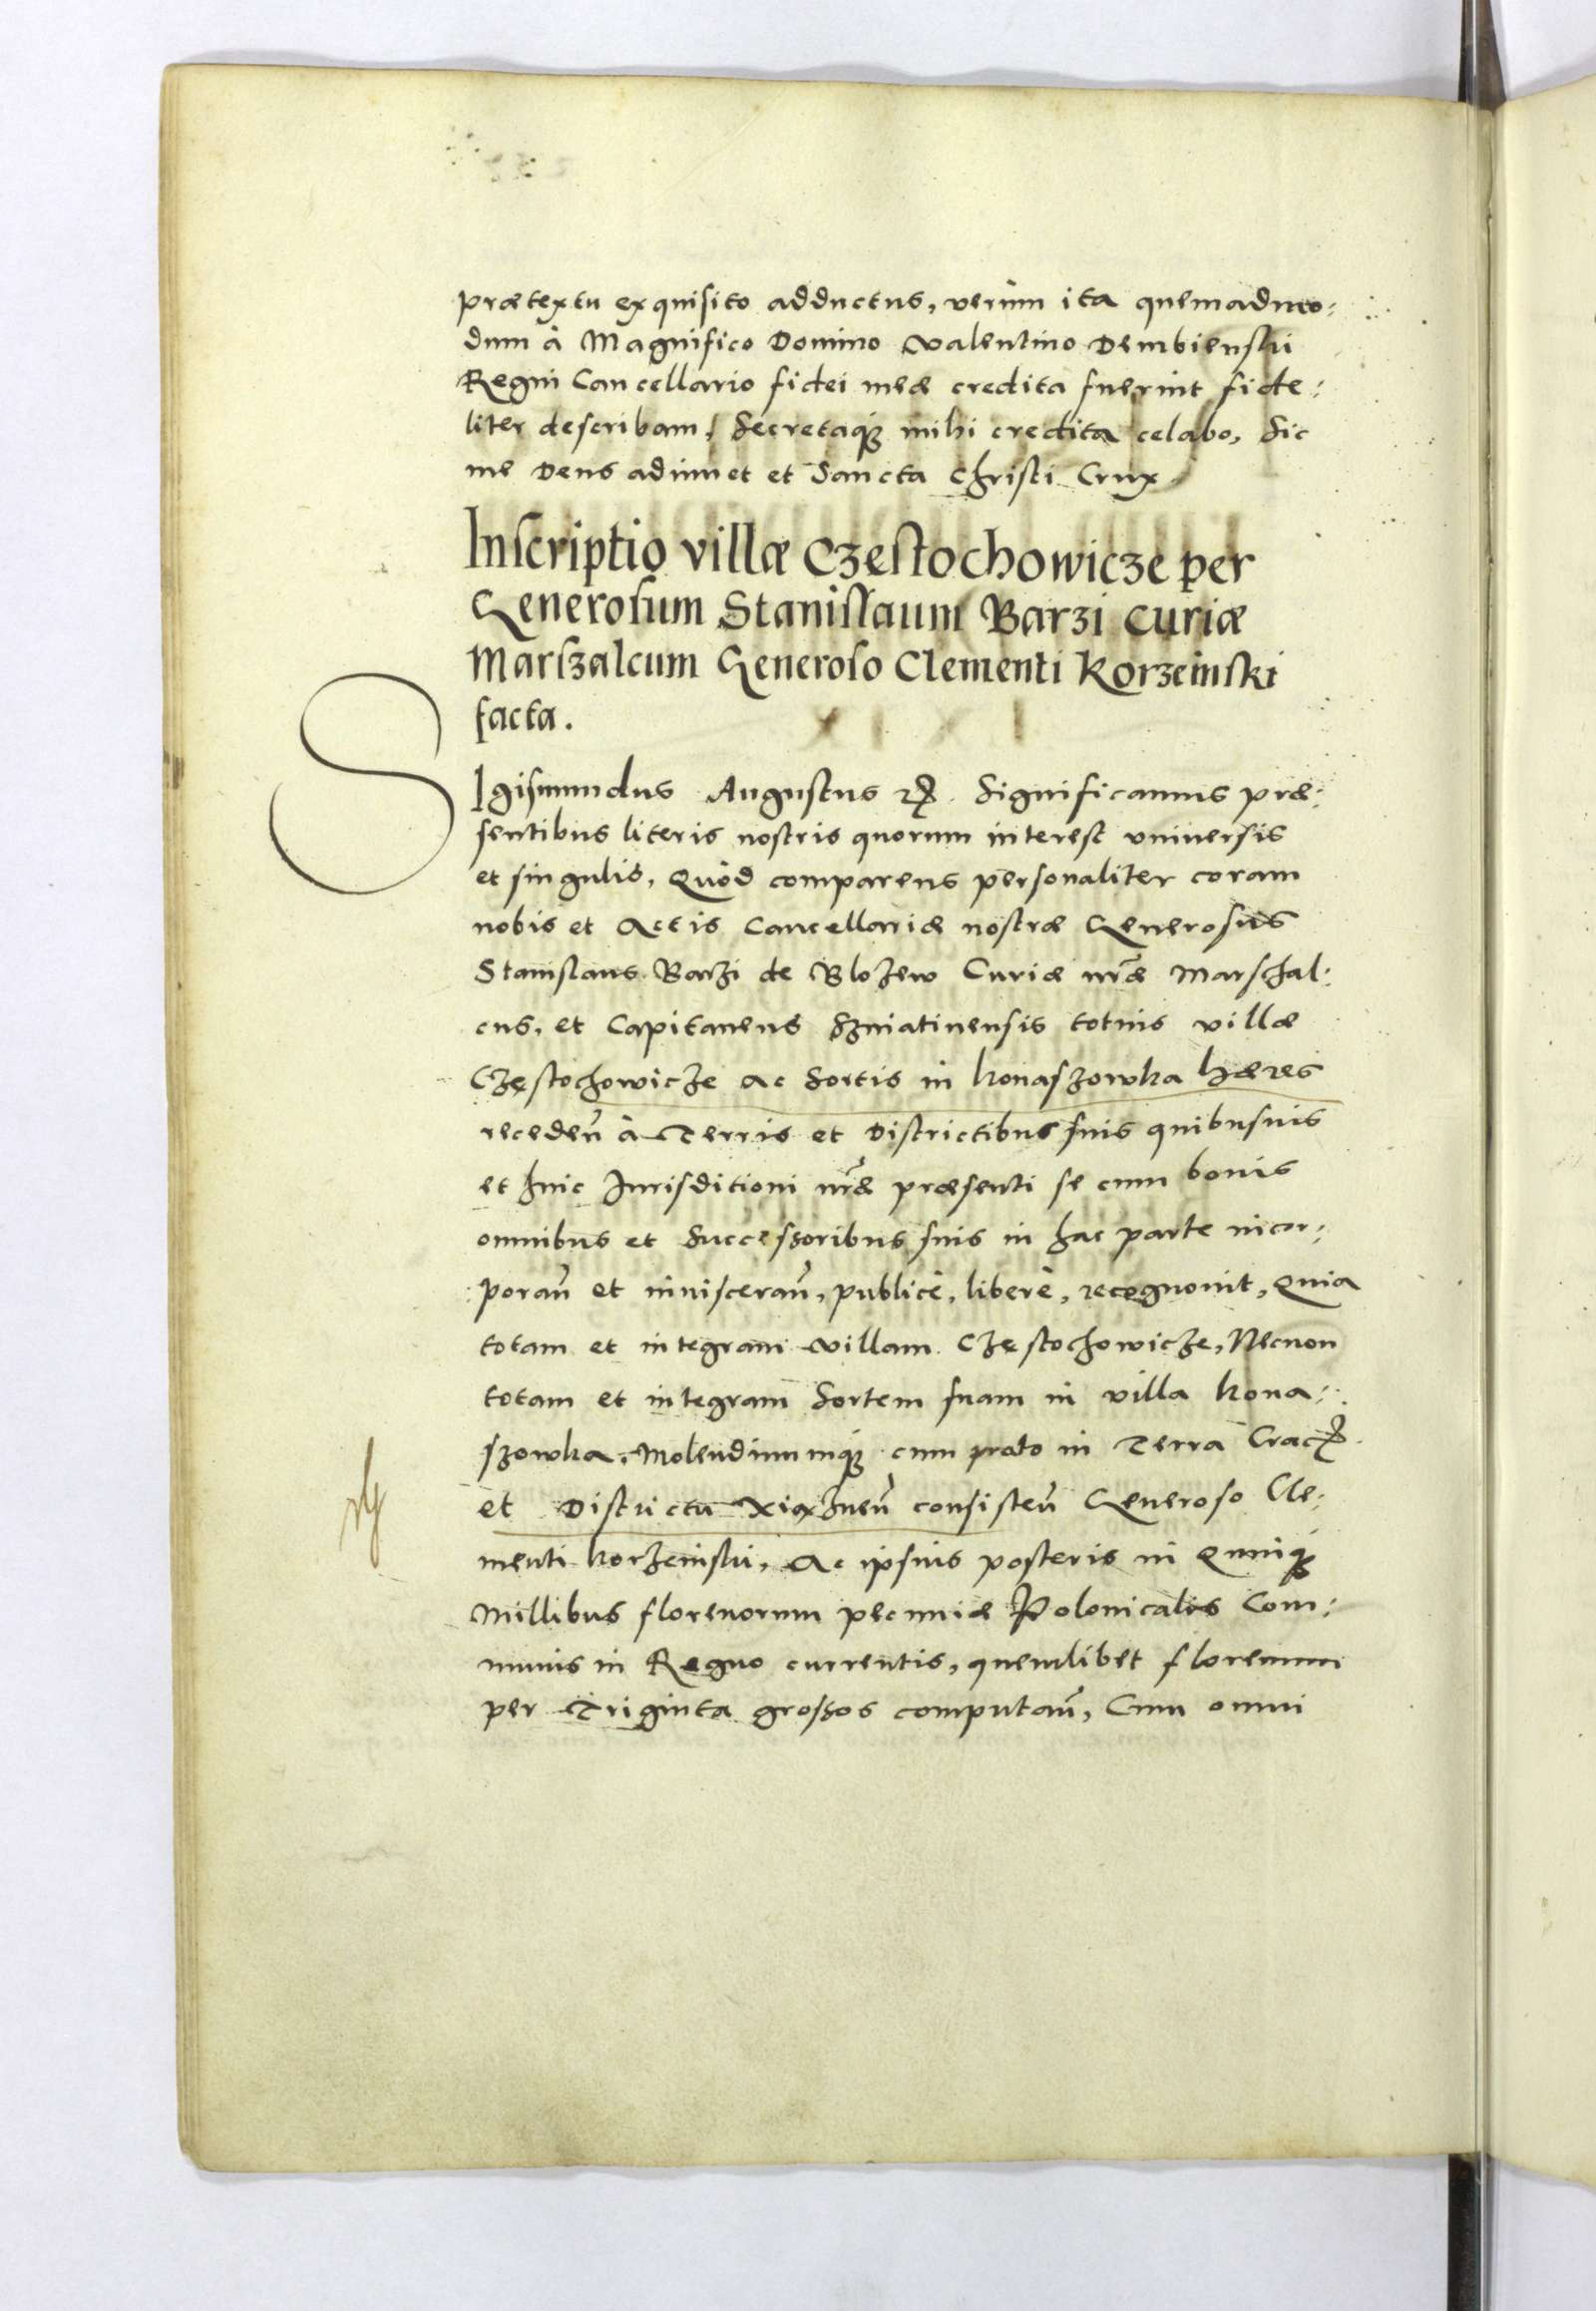 prætextu exquisito adductus, verùm ita quemadmo:
dum à Magnifico Domino Valentino Dembienski
Regni Cancellario fidei meæ credita fuerint fide:
liter describam, Secretaq3 mihi credita celabo, Sic
me Deus adiuuet et Sancta Christi Crux
Inscriptio villæ Czestochowicze per
Generosum Stanislaum Barzi Curiæ
Marszalcum Generoso Clementi Korzeinski
facta.
SIgismundus Augustus Significamus præ:
sentibus literis nostris quorum interest vniuersis
et singulis, Quòd comparens personaliter coram
nobis et Actis Cancellariæ nostræ Generosus
Stanislaus Barzi de Blozew Curiæ nr̃æ Marschal:
cus, et Capitaneus Szniatinensis totius villæ
Czestochowicze ac Sortis in Konaszowka hæres
receden̄ à Terris et Districtibus suis quibusuis
et huic Jurisditioni nr̃æ præsenti se cum bonis
omnibus et Successoribus suis in hac parte incor:
poran̄ et inuisceran̄, publicè, liberè, recognouit, Quia
totam et integram villam Czestochowicze, Necnon
totam et integram Sortem suam in villa Kona:
szowka, Molendinumq3 cum prato in Terra Crac
et Districtu Xiąznen̄ consisten̄ Generoso Cle:
menti Korzeinski, Ac ipsius posteris in Quinq3
Millibus florenorum pecuniæ Polonicalis Com:
munis in Regno currentis, quemlibet florenum
per Triginta grossos computan̄, Cum omni